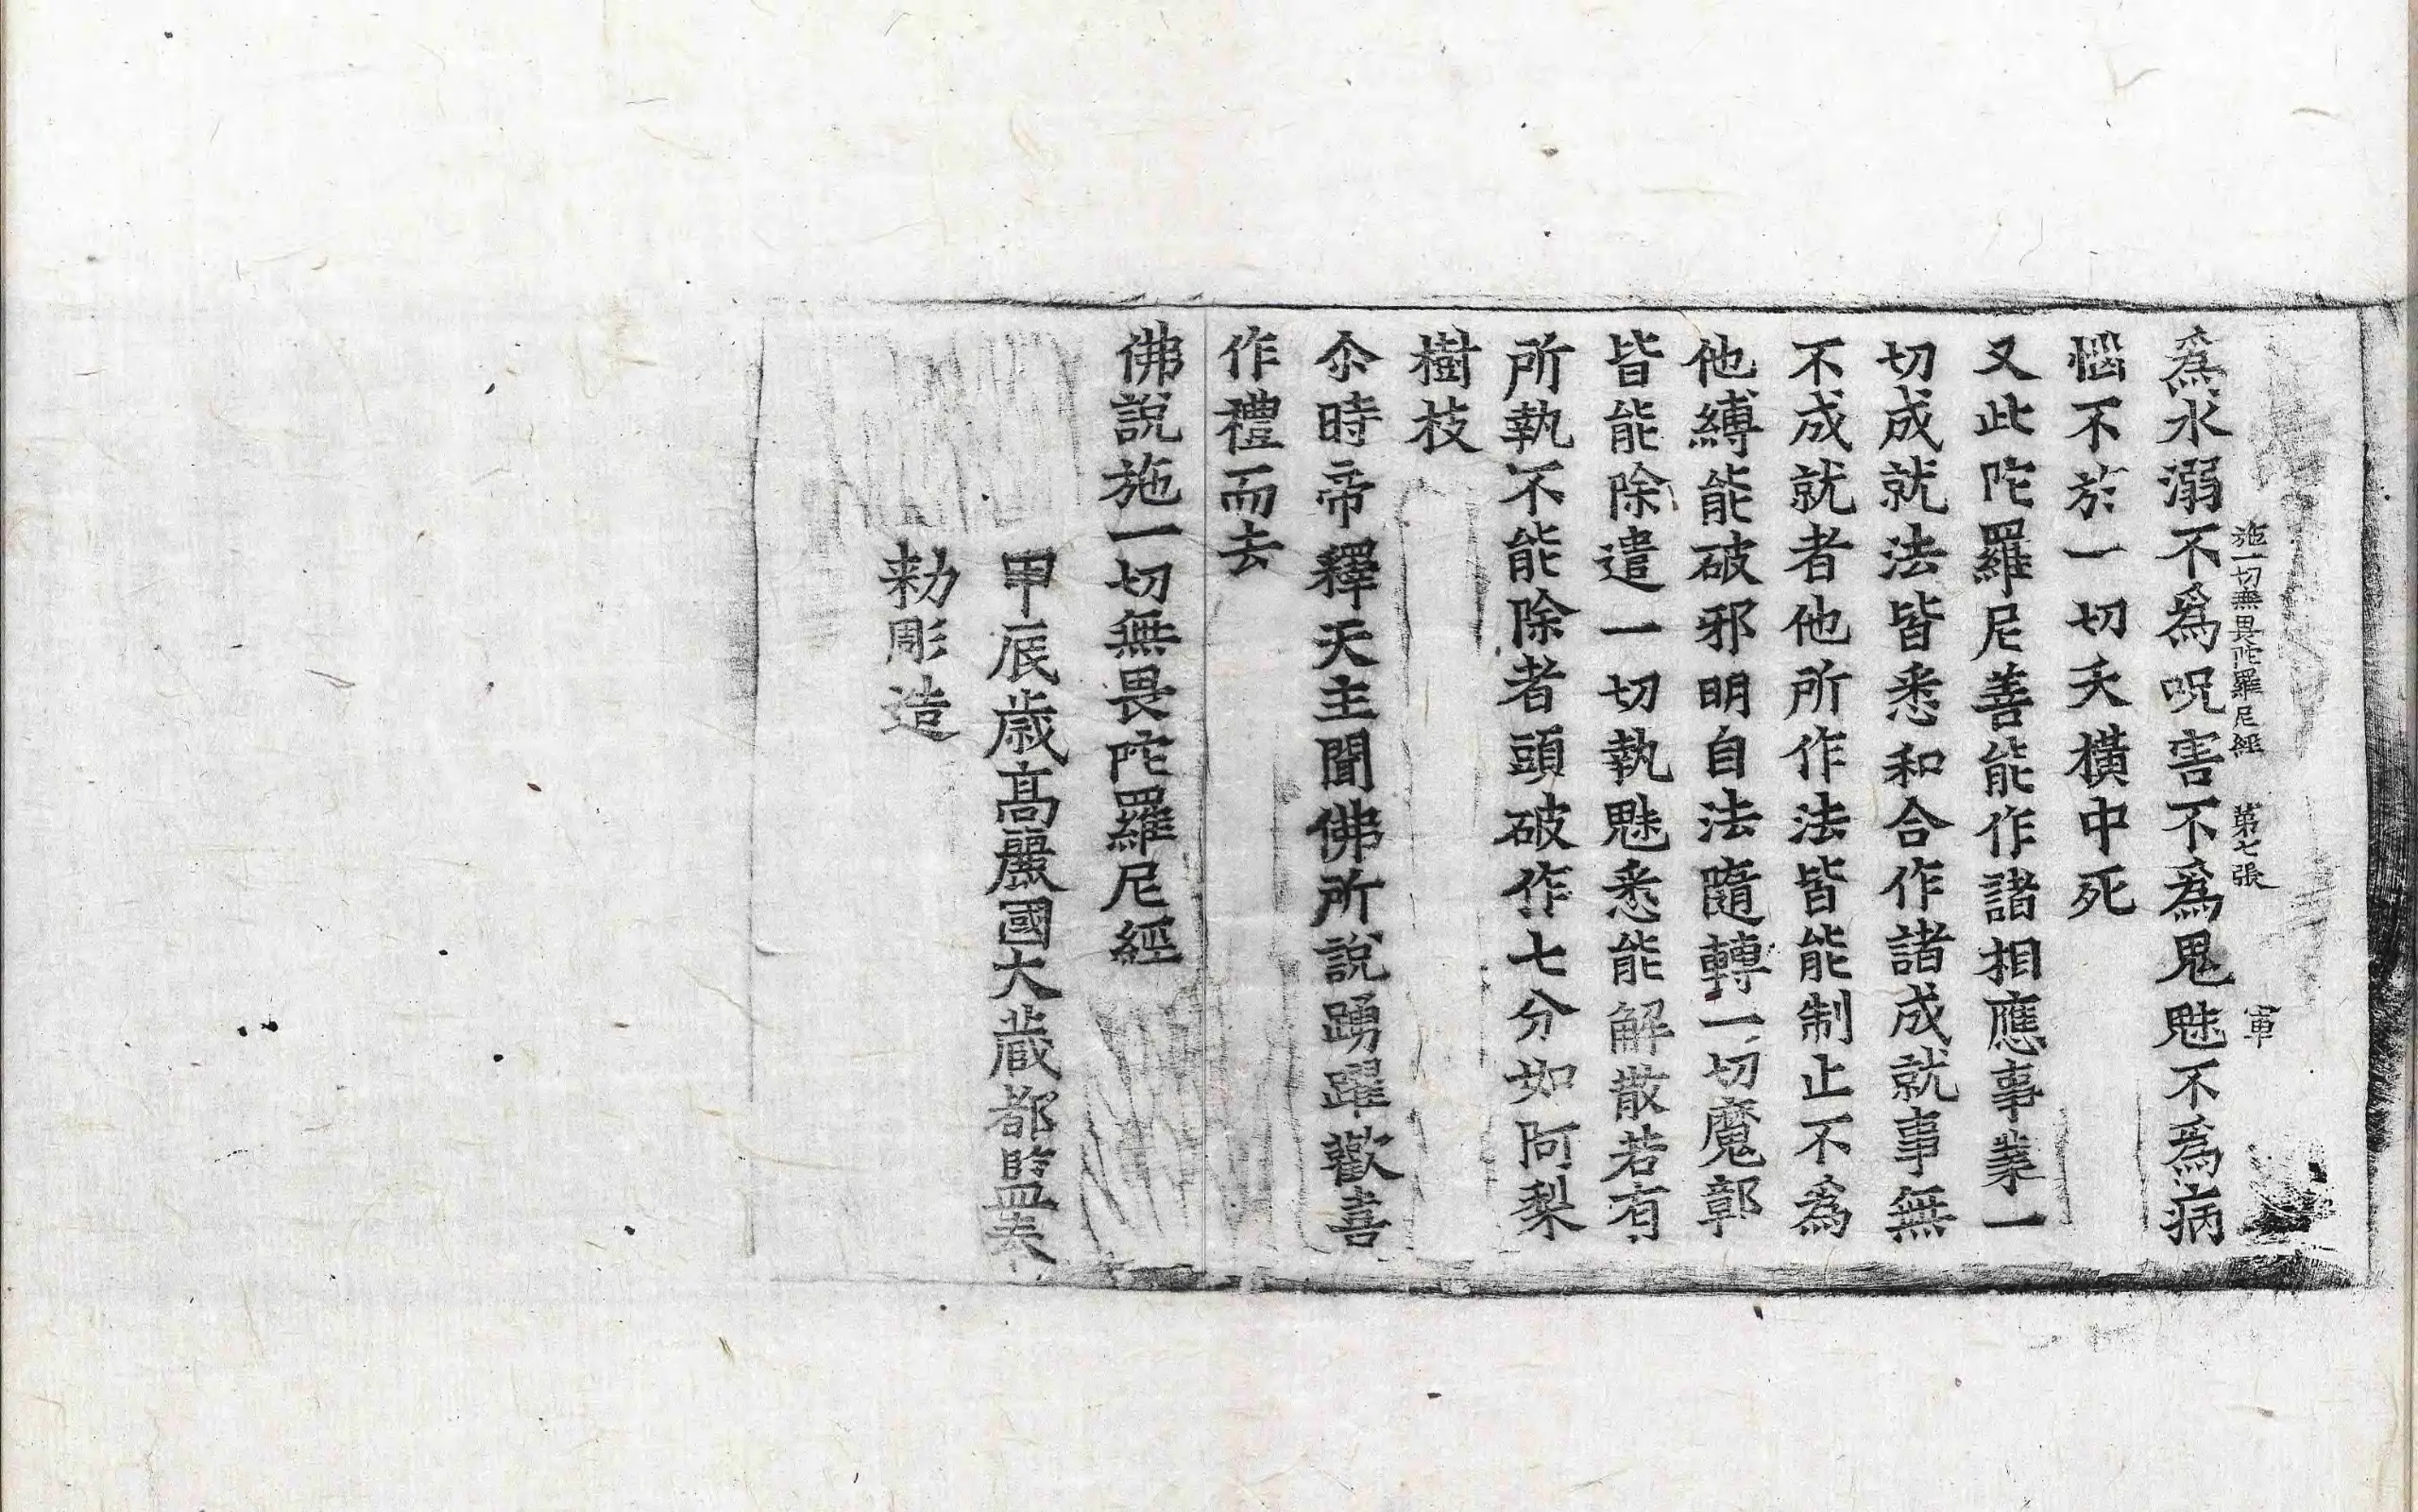 爲水溺不爲呪害不爲鬼魅不爲病
施一切無畏陀羅尼經 第七張 軍
惱不於一切夭橫中死
又此陀羅尼善能作諸相應事業一
切成就法皆悉和合作諸成就事無
不成就者他所作法皆能制止不爲
他縛能破邪明自法隨轉一切魔鄣
皆能除遣一切執魅悉能解散若有
所執不能除者頭破作七分如阿梨
樹枝
尒時帝釋天主聞佛所說踴躍歡喜
作禮而去
佛說施一切無畏陀羅尼經
甲辰歲高麗國大藏都監奉
勅彫造